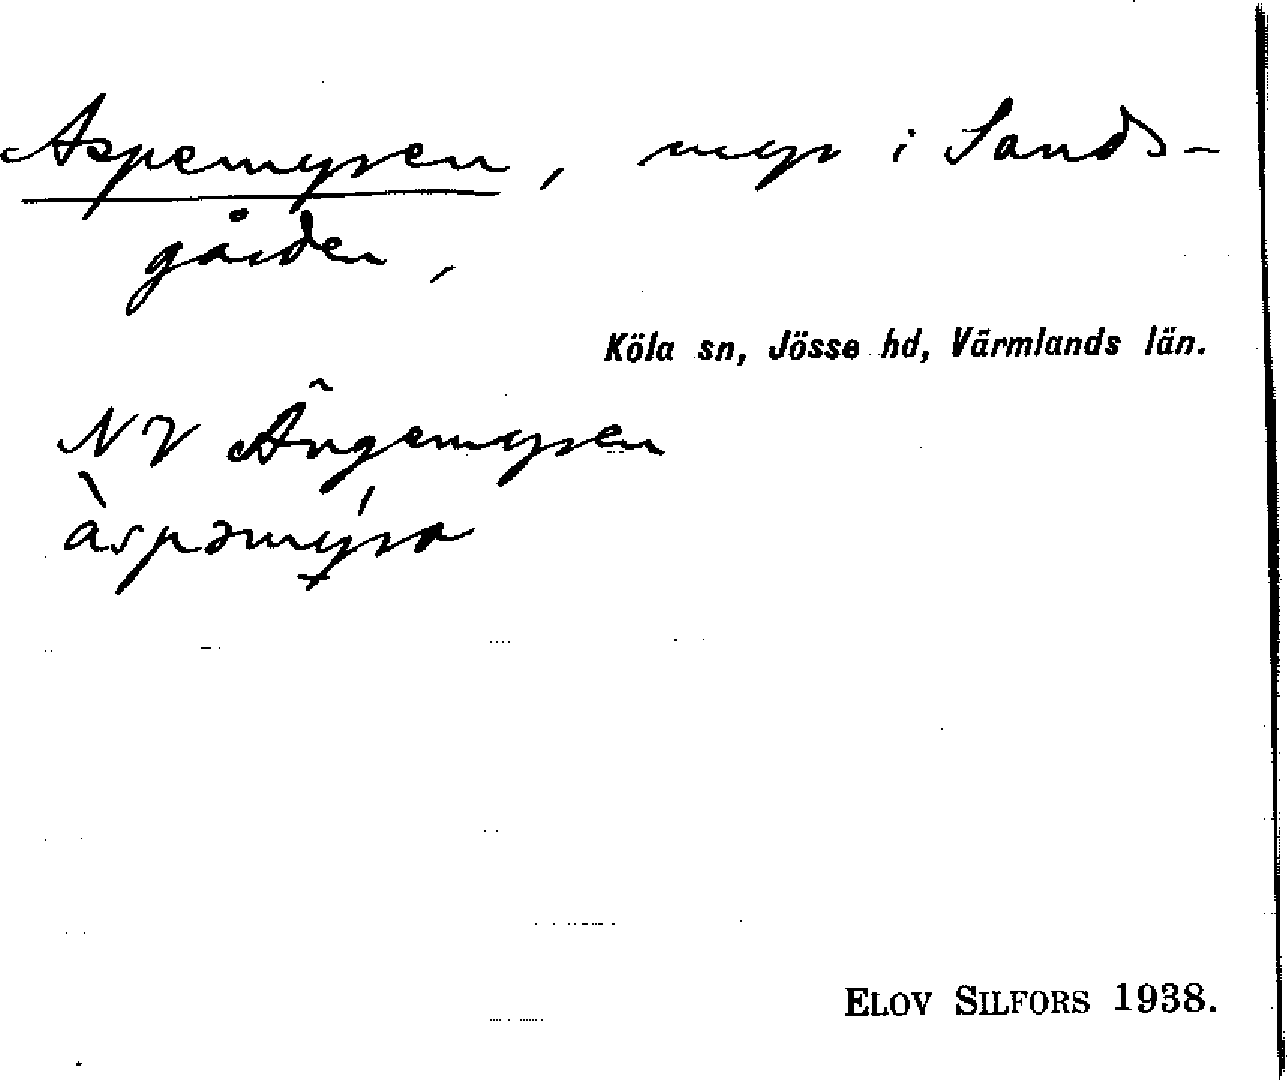 Aspemyren, myr i Sands-
gården,
Köla sn, Jösse hd, Värmlands län.
NV Ängemyren
àspəmýra
ELOV SILFORS 1938.